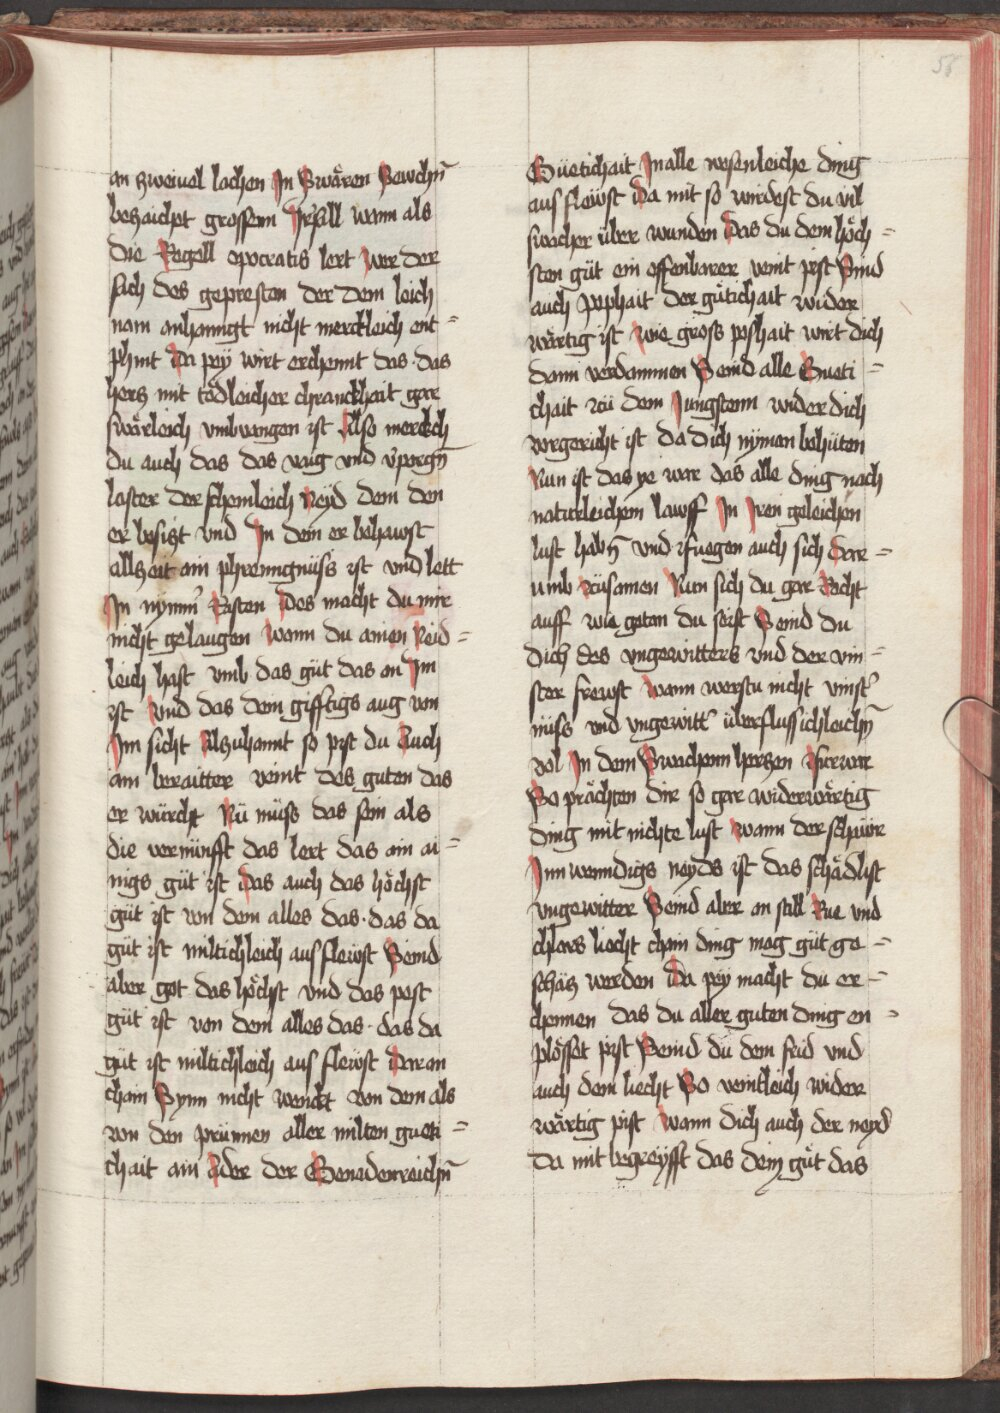 56
an zweivel lachen In Swären Sewchn̄
bezaichet grossenn Irsall wann als
die Regell ypocratis lert Wer der
sich des gepresten der dem leich
nam anhanngt nicht merckleich ent =
phint Da pey wirt erchennt das · das
hercz mit tödleicher chranckhait gar
swärleich vmbvangen ist Also merckch
du auch das das vaig vnd v̄porgn̄
laster der schemleich Neyd dem den
er besiczt vnd In dem er behawst
allzeit ain phrenngnüss ist vnd lett
In nymm̄ Rasten Des macht du mir
nicht gelaugen Wann du ainen Neid =
leich hast vmb das güt das an Im
ist Vnd das dein gifftigs aug von
Im sicht Alzuhannt so pist du Auch
ain beraitter veint des guten das
er würcht Nü müss das sein als
die vernünfft das lert das ain ai =
nigs güt ist Das auch das höchst
güt ist von dem alles das · das da
güt ist miltichleich ausflewst Seind
aber got das höchst vnd das pest
güt ist von dem alles das · das da
güt ist miltichleich aus flewst Daran
chain Synn nicht wenckt von dem als
von den prünnen aller milten gueti =
chait ain Ader der Genadenreichn̄
Güetichait In alle wesenleiche ding
aus flewst Da mit so wirdest du vil
swacher über wunden Das du dem höch =
sten güt ein offenbarer veint pist Sind
auch poshait der gütichait wider
wärtig ist Wie gross poshait wirt dich
dann verdammen Seind alle Gueti =
chait zü dem Jungstenn wider dich
vorgericht ist da dich nyman behüten
Nun ist das ye war das alle ding nach
naturleichem lawff In Iren geleichen
lust habn̄ vnd zfuegen auch sich Dar =
umb züsamen Nun sich du gar Recht
auff wie getan du seist Seind du
dich des vngewitters vnd der vin =
ster frewst Wann werstu nicht vinst̄
nüss vnd vngewitt̄ überflussichleichn̄
vol In dem Swachenn herczen Fürwar
So prächten dir so gar widerwärtig
ding mit nichte lust Wann der schawr
Inn wenndigs neyds ist das schädlist
vngewitter Seind aber an still Rue vnd
chlars liecht chain ding mag güt ge =
schäcz werden Da pey macht du er =
chennen das du aller guten ding en =
plösset pist Seind du dem frid vnd
auch dem liecht So veintleich wider
wärtig pist Wann dich auch der neyd
Da mit begreyfft das dem güt das